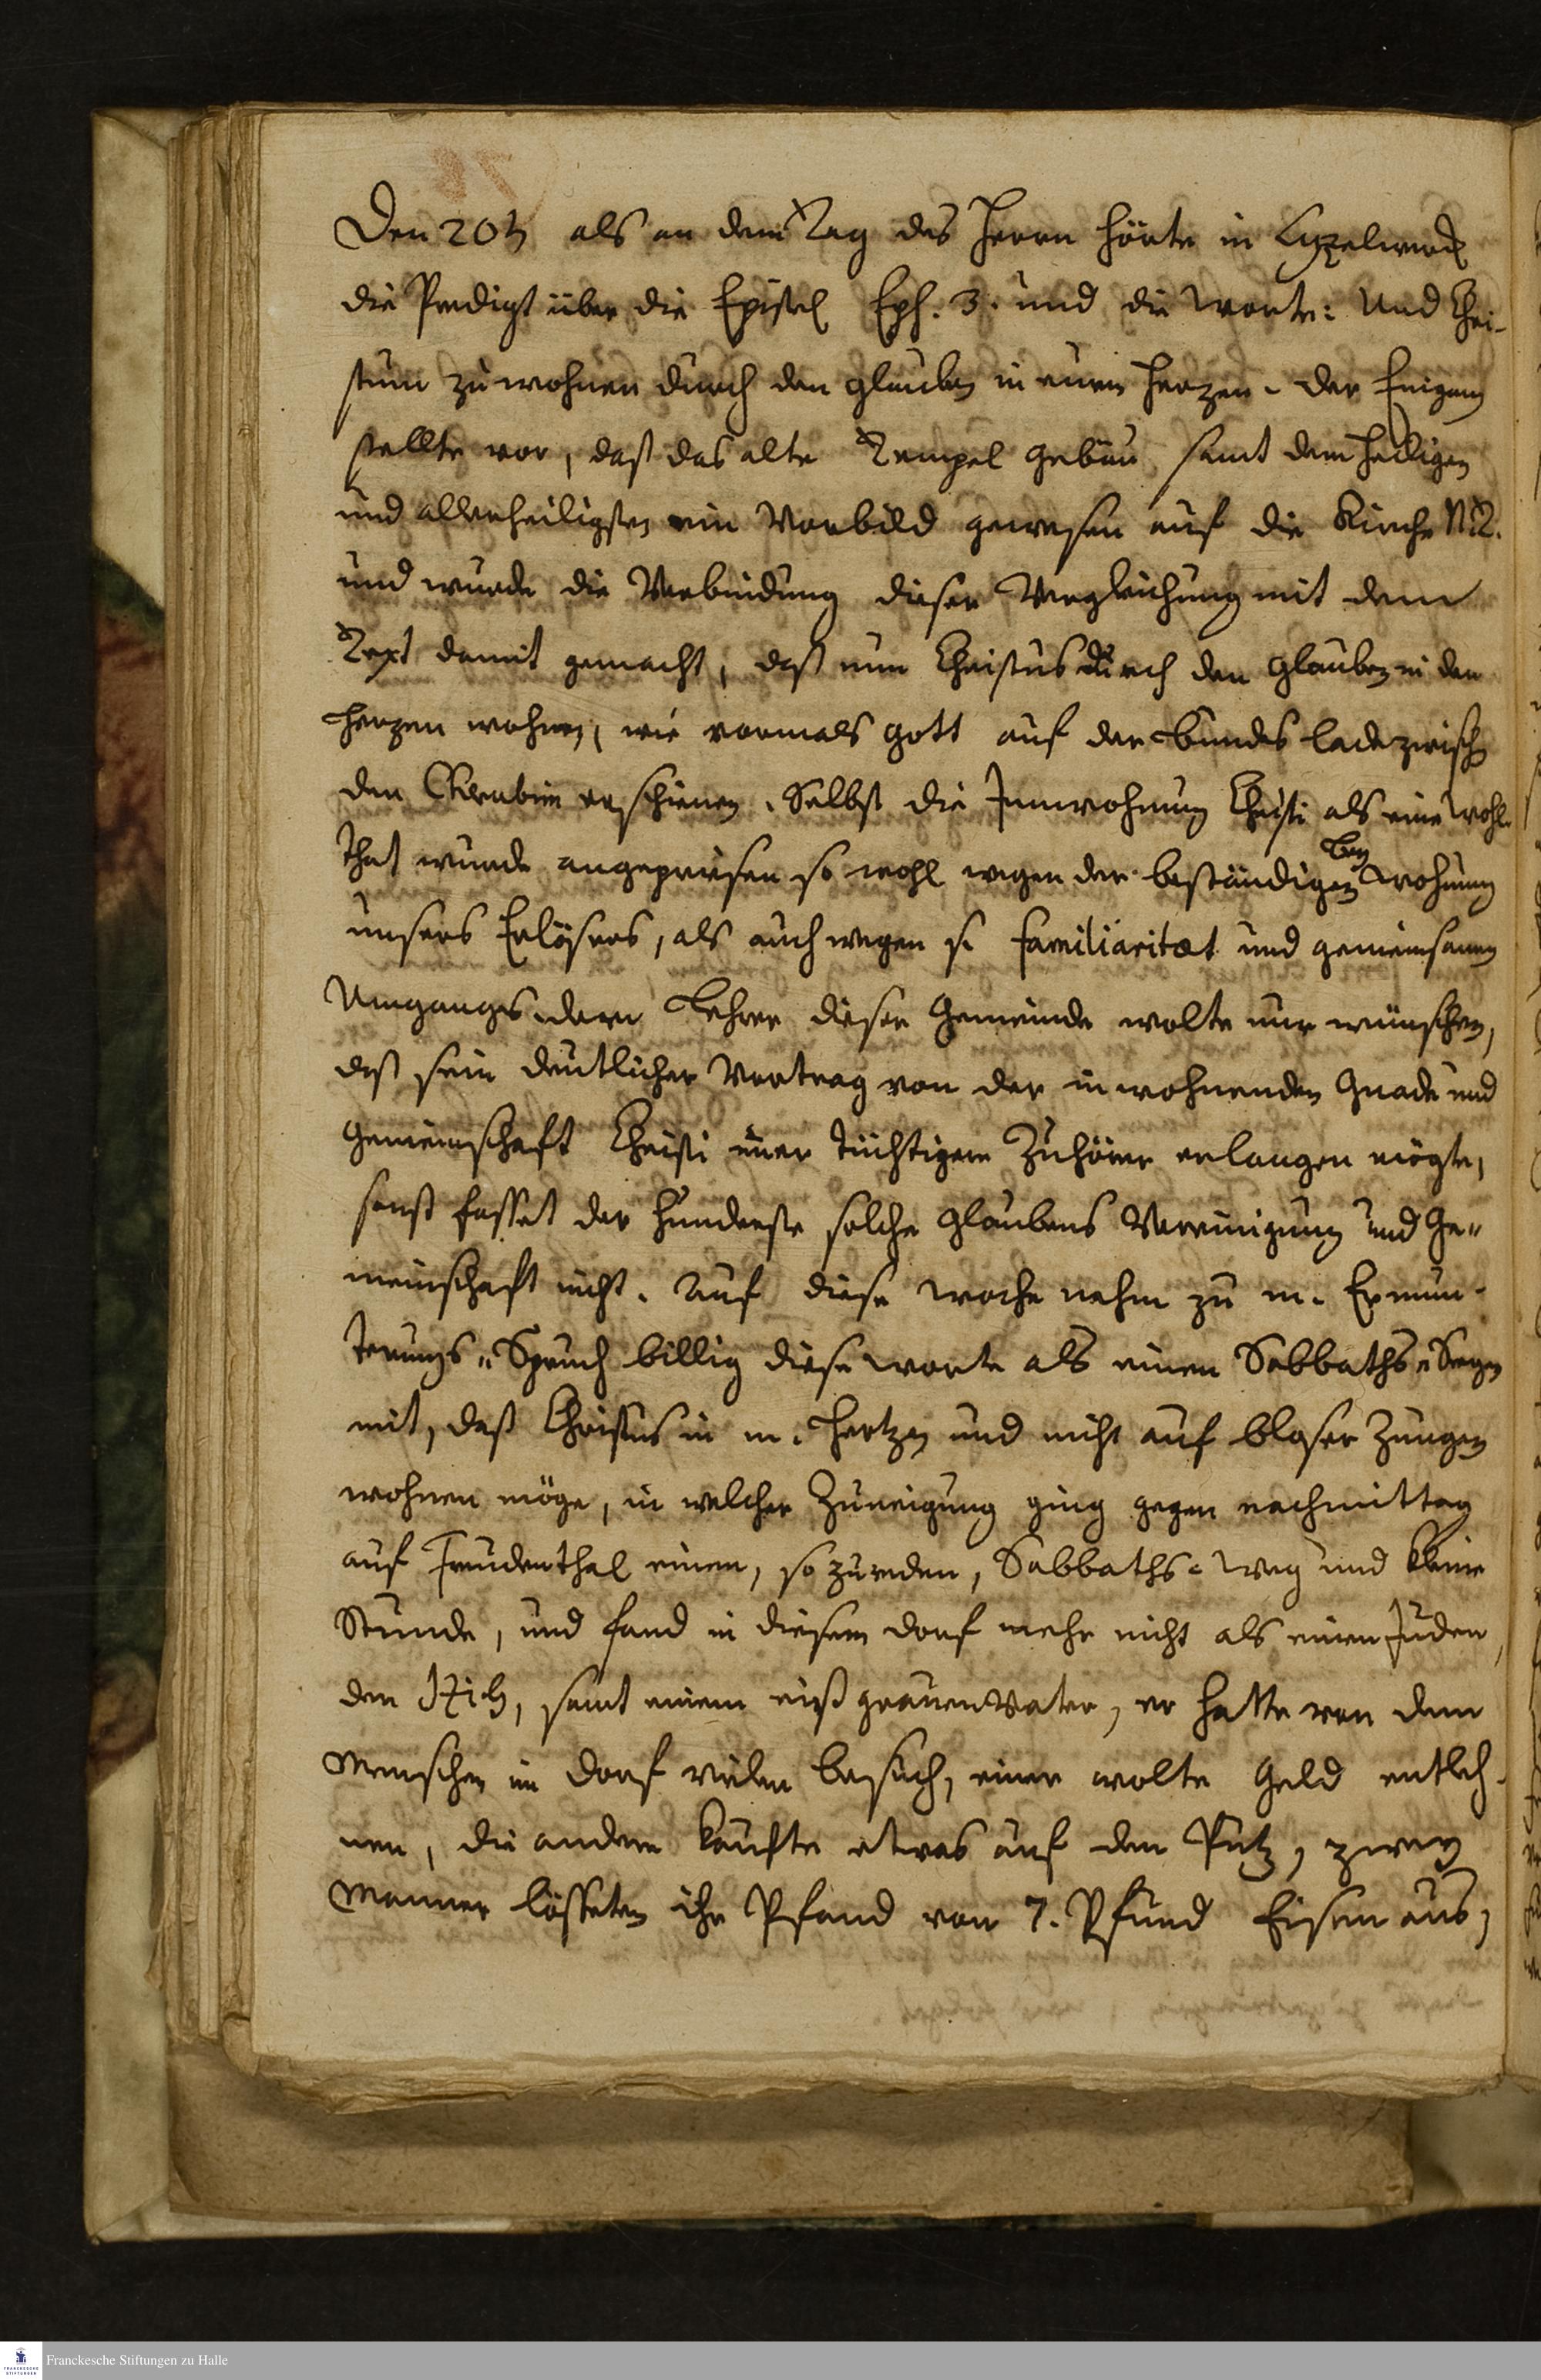 Den 20t als an dem Tag des Herrn hörte in
die Predigt über die Epistel Eph. 3. und die Worte: Und Chri-
stum zu wohnen durch den glauben in euren Herzen. der Eingang
stellte vor, daß das alte Tempel gebäu samt dem Heiligen
und allerheiligsten ein Vorbild gewesen auf die Kirche N.T.
und wurde die Verbindung dieser Vergleichung mit dem
Text damit gemacht, daß nun Christus durch den glauben in den
Herzen wohne, wie vormals gott auf der Bundes lade zwischen
den Cherubim erschienen. Selbst die Innwohnung Christi als eine Wohl-
that wurde angepriesen so wohl wegen der beständigen Bey wohnung
unsers Erlösers, als auch wegen s. familiaritæt und gemeinsamen
Umganges. dem Lehrer dieser Gemeinde wolte nur wünschen,
daß sein deutlicher Vortrag von der inwohnenden Gnade und
gemeinschaft Christi immer tüchtigere Zuhörer erlangen mögte,
sonst fasset der Hunderste solche glaubens Vereinigung und Ge-
meinschaft nicht. Auf diese Woche nahm zu m. Ermun-
terungs-Spruch billig diese Worte als einen Sabbaths-Segen
mit, daß Christus in m. Hertzen und nicht auf bloser Zungen
wohnen möge, in welcher Zuneigung ging gegen nachmittag
auf Freudenthal einen, so zu reden, Sabbaths-Weg und kleine
Stunde, und fand in diesem dorf mehr nicht als einen Juden,
den samt einem eiß grauen Vater, er hatte von den
Menschen im dorf vielen besuch, einer wolte Geld entleh-
nen, die andere kaufte etwas auf den Putz, zwey
Männer lösseten ihr Pfand von 7. Pfund Eisen aus,
Franckesche Stiftungen zu Halle